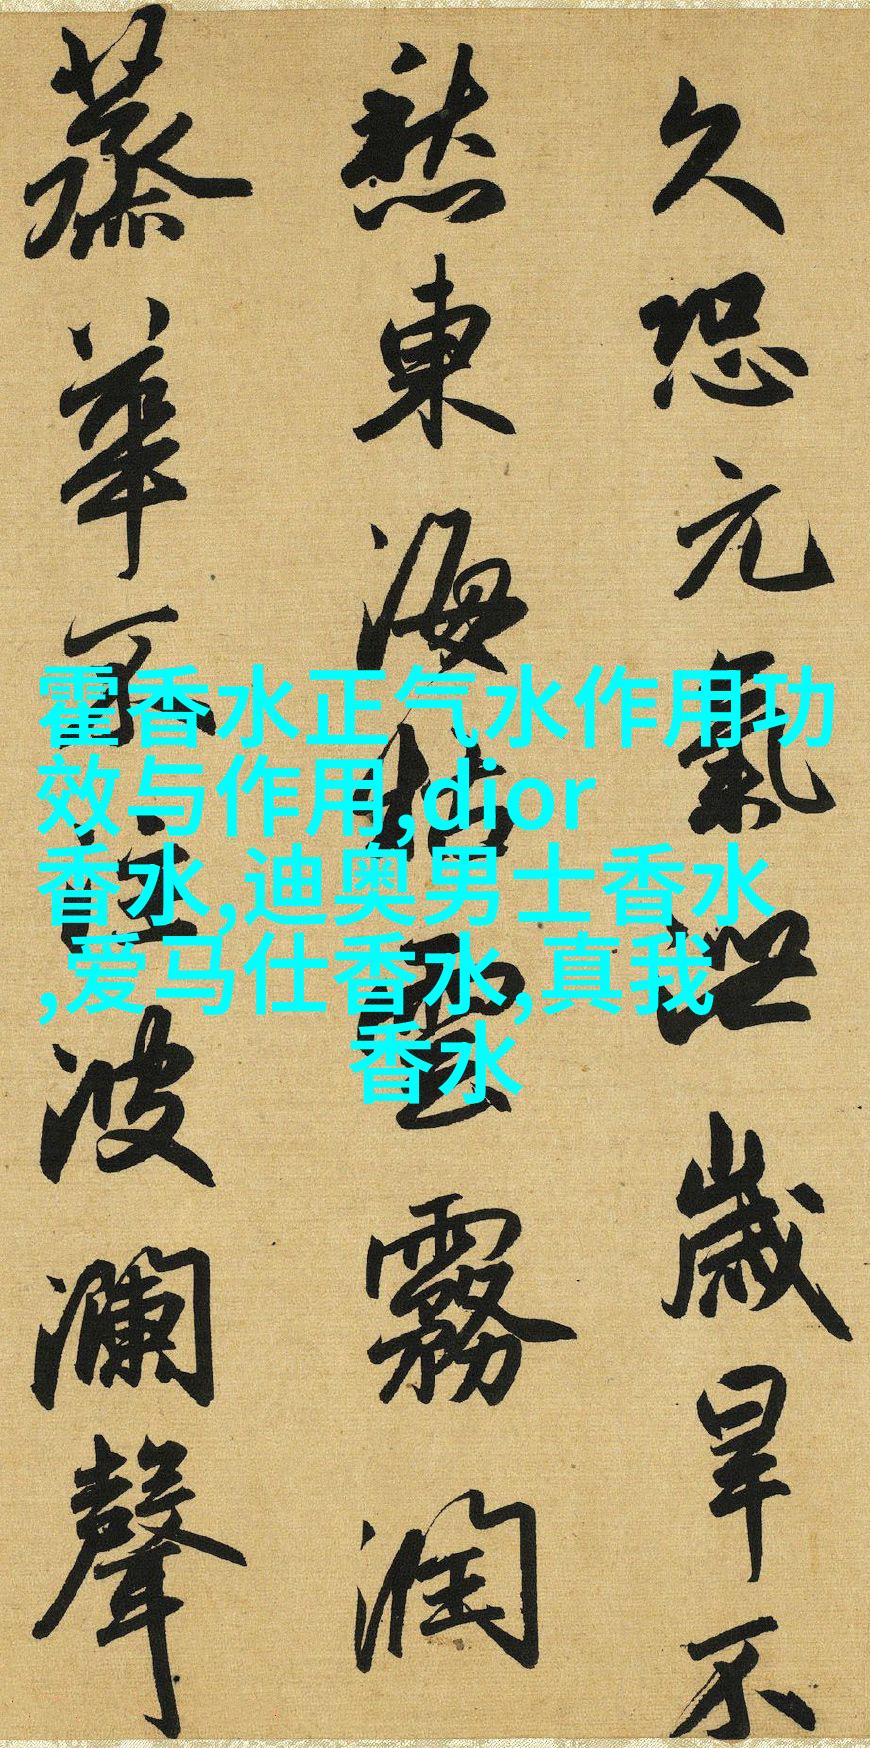 久恐元氣泄歲旱不
愁東海枯雲霧潤
蒸華不注波瀾聲
霍香水正气水作用功
效与作用,dior
香水,迪奥男士香水
,爱马仕香水,真我
香水